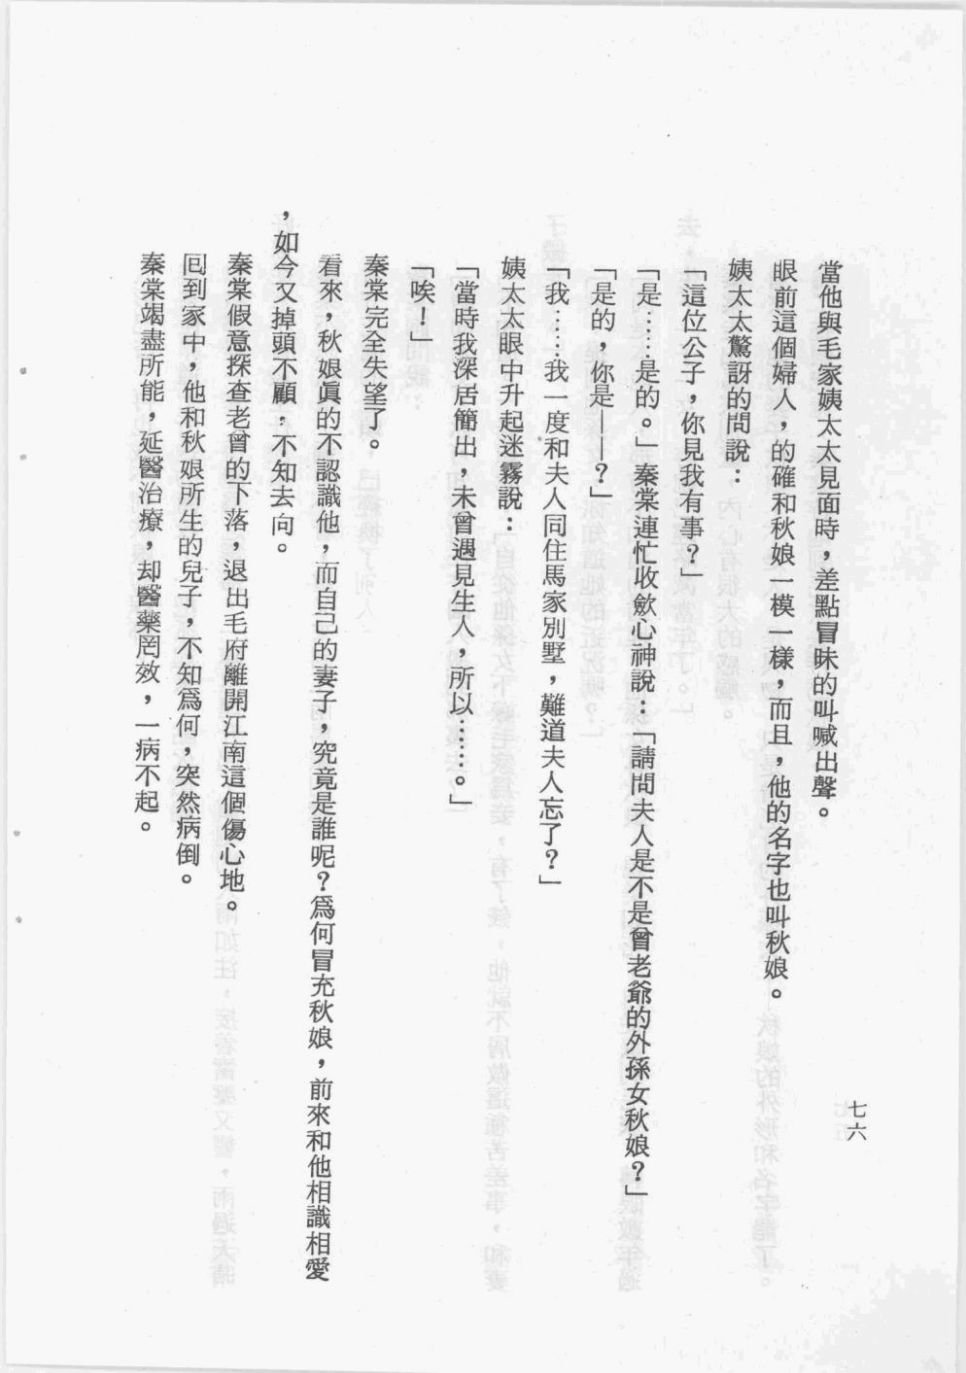 七六
當他與毛家姨太太見面時，差點冒昧的叫喊出聲。
眼前這個婦人，的確和秋娘一模一樣，而且，他的名字也叫秋娘。
姨太太驚訝的問說：
「這位公子，你見我有事？」
「是……是的。」秦棠連忙收歛心神說：「請問夫人是不是曾老爺的外孫女秋娘？」
「是的，你是——？」
「我……我一度和夫人同住馬家別墅，難道夫人忘了？」
姨太太眼中升起迷霧說：
「當時我深居簡出，未曾遇見生人，所以……。」
「唉！」
秦棠完全失望了。
看來，秋娘眞的不認識他，而自己的妻子，究竟是誰呢？爲何冒充秋娘，前來和他相識相愛
，如今又掉頭不顧，不知去向。
秦棠假意探查老曾的下落，退出毛府離開江南這個傷心地。
囘到家中，他和秋娘所生的兒子，不知爲何，突然病倒。
秦棠竭盡所能，延醫治療，却醫藥罔效，一病不起。